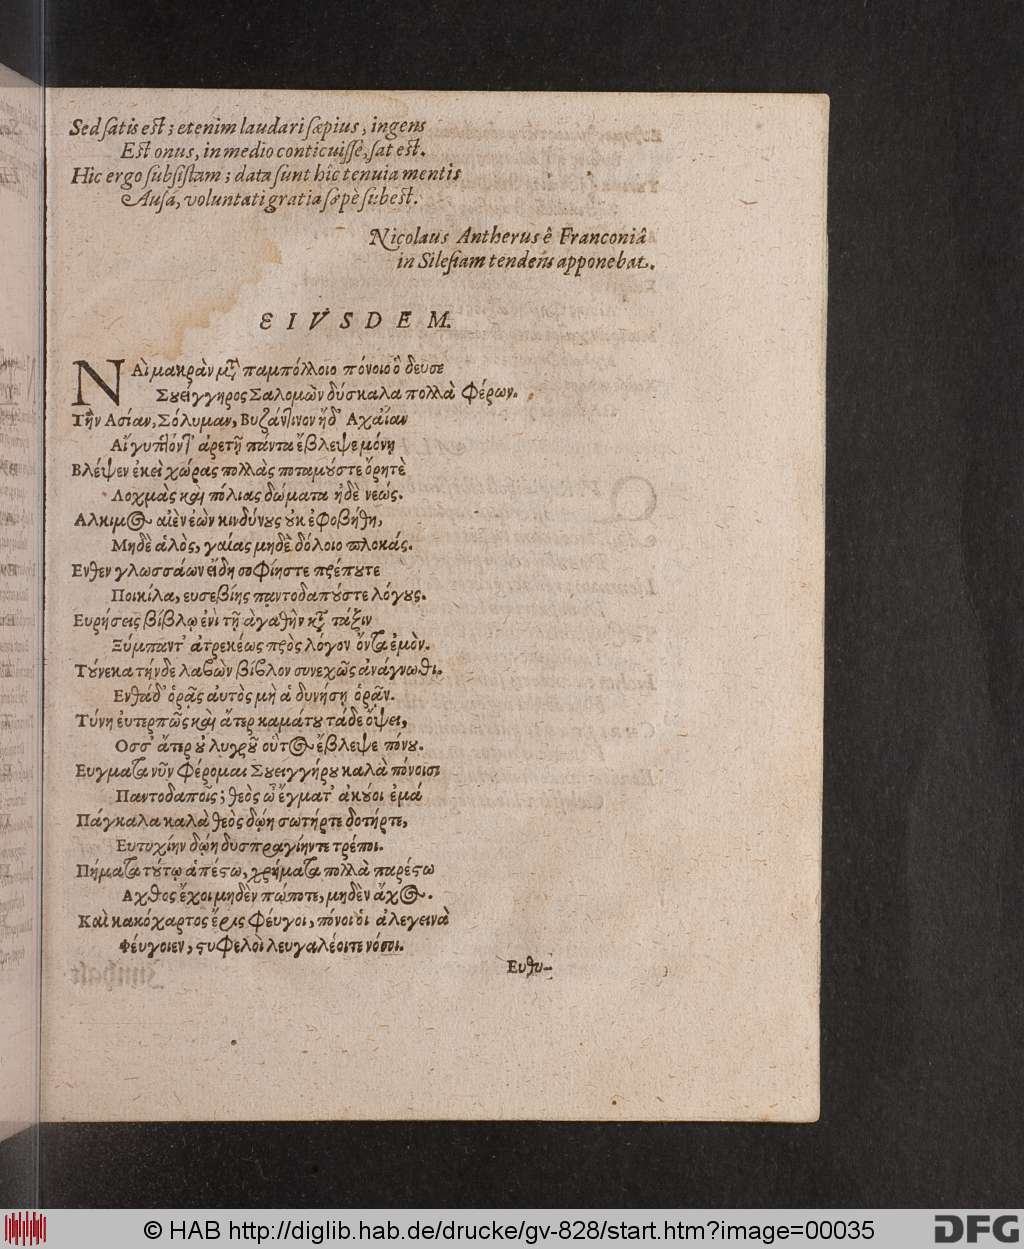 Sed satis est; etenim laudari sæpius, ingens
Est onus, in medio conticuisse, sat est.
Hic ergo subsistam; data sunt hîc tenuia mentis
Ausa, voluntati gratia sæpè subest.
Nicolaus Antherus ê Franconiâ
in Silesiam tendens apponebat.
EIVSDEM.
ΝΑὶ μακρὰν μετὰ παμπόλλοιο πόνοιο ὅδευσε
Σουείγγηρος Σαλομὼν δύσκαλα πολλὰ φέρων.
Τὴν Ασίαν, Σόλυμαν, Βυζάντινον ἠδ' Αχαΐαν
Αἴγυπτόν τ' ἀρετῇ πάντα ἔβλεψε μόνῃ
Βλέψεν ἐκεὶ χώρας πολλὰς ποταμούς τε ὄρητὲ
Λοχμὰς καὶ πόλιας δώματα ἠδὲ νεώς.
Αλκιμος αἰὲν ἐὼν κινδύνους οὐκ ἐφοβήθη,
Μηδὲ ἁλὸς, γαίας μηδὲ δόλοιο πλοκάς.
Ενθεν γλωσσάων εἴδη σοφίης τε πρέπουτε
Ποικίλα, ευσεβίης παντοδαπούς τε λόγους.
Ευρήσεις βίβλῳ ἐνὶ τῇ ἀγαθὴν κατὰ τάξιν
Ξύμπαντ' ἀτρεκέως πρὸς λόγον ὄντα ἐμὸν.
Τούνεκα τήνδε λαβὼν βίβλον συνεχῶς ἀνάγνωθι.
Ενθάδ' ὁρᾷς αὐτὸς μὴ ἃ δυνήσῃ ὁρᾷν.
Τύνη ἐυτερπῶς καὶ ἄτερ καμάτου τάδε ὄψει,
Οσσ' ἄτερ οὐ λυγροῦ οὗτος ἔβλεψε πόνου.
Ευγματα νῦν φέρομαι Σουειγγήρου καλὰ πόνοισι
Παντοδαποῖς; θεὸς ὦ ἔγματ' ἀκούοι ἐμά
Πάγκαλα καλὰ θεὸς δῴη σωτήρτε δοτήρτε,
Ευτυχίην δῴη δυσπραγίην τε τρέποι.
Πήματα τούτῳ ἀπέστω, χρήματα πολλὰ παρέστω
Αχθος ἔχοι μηδὲν πώποτε, μηδὲν ἄχος.
Καὶ κακόχαρτος ἔρις φέυγοι, πόνοι ὁι ἀλεγεινὰ
Φέυγοιεν, στυφελοὶ λευγαλέοι τε νόσοι.
Ευθυ-
© HAB http://diglib.hab.de/drucke/gv-828/start.htm?image=00035
DFG